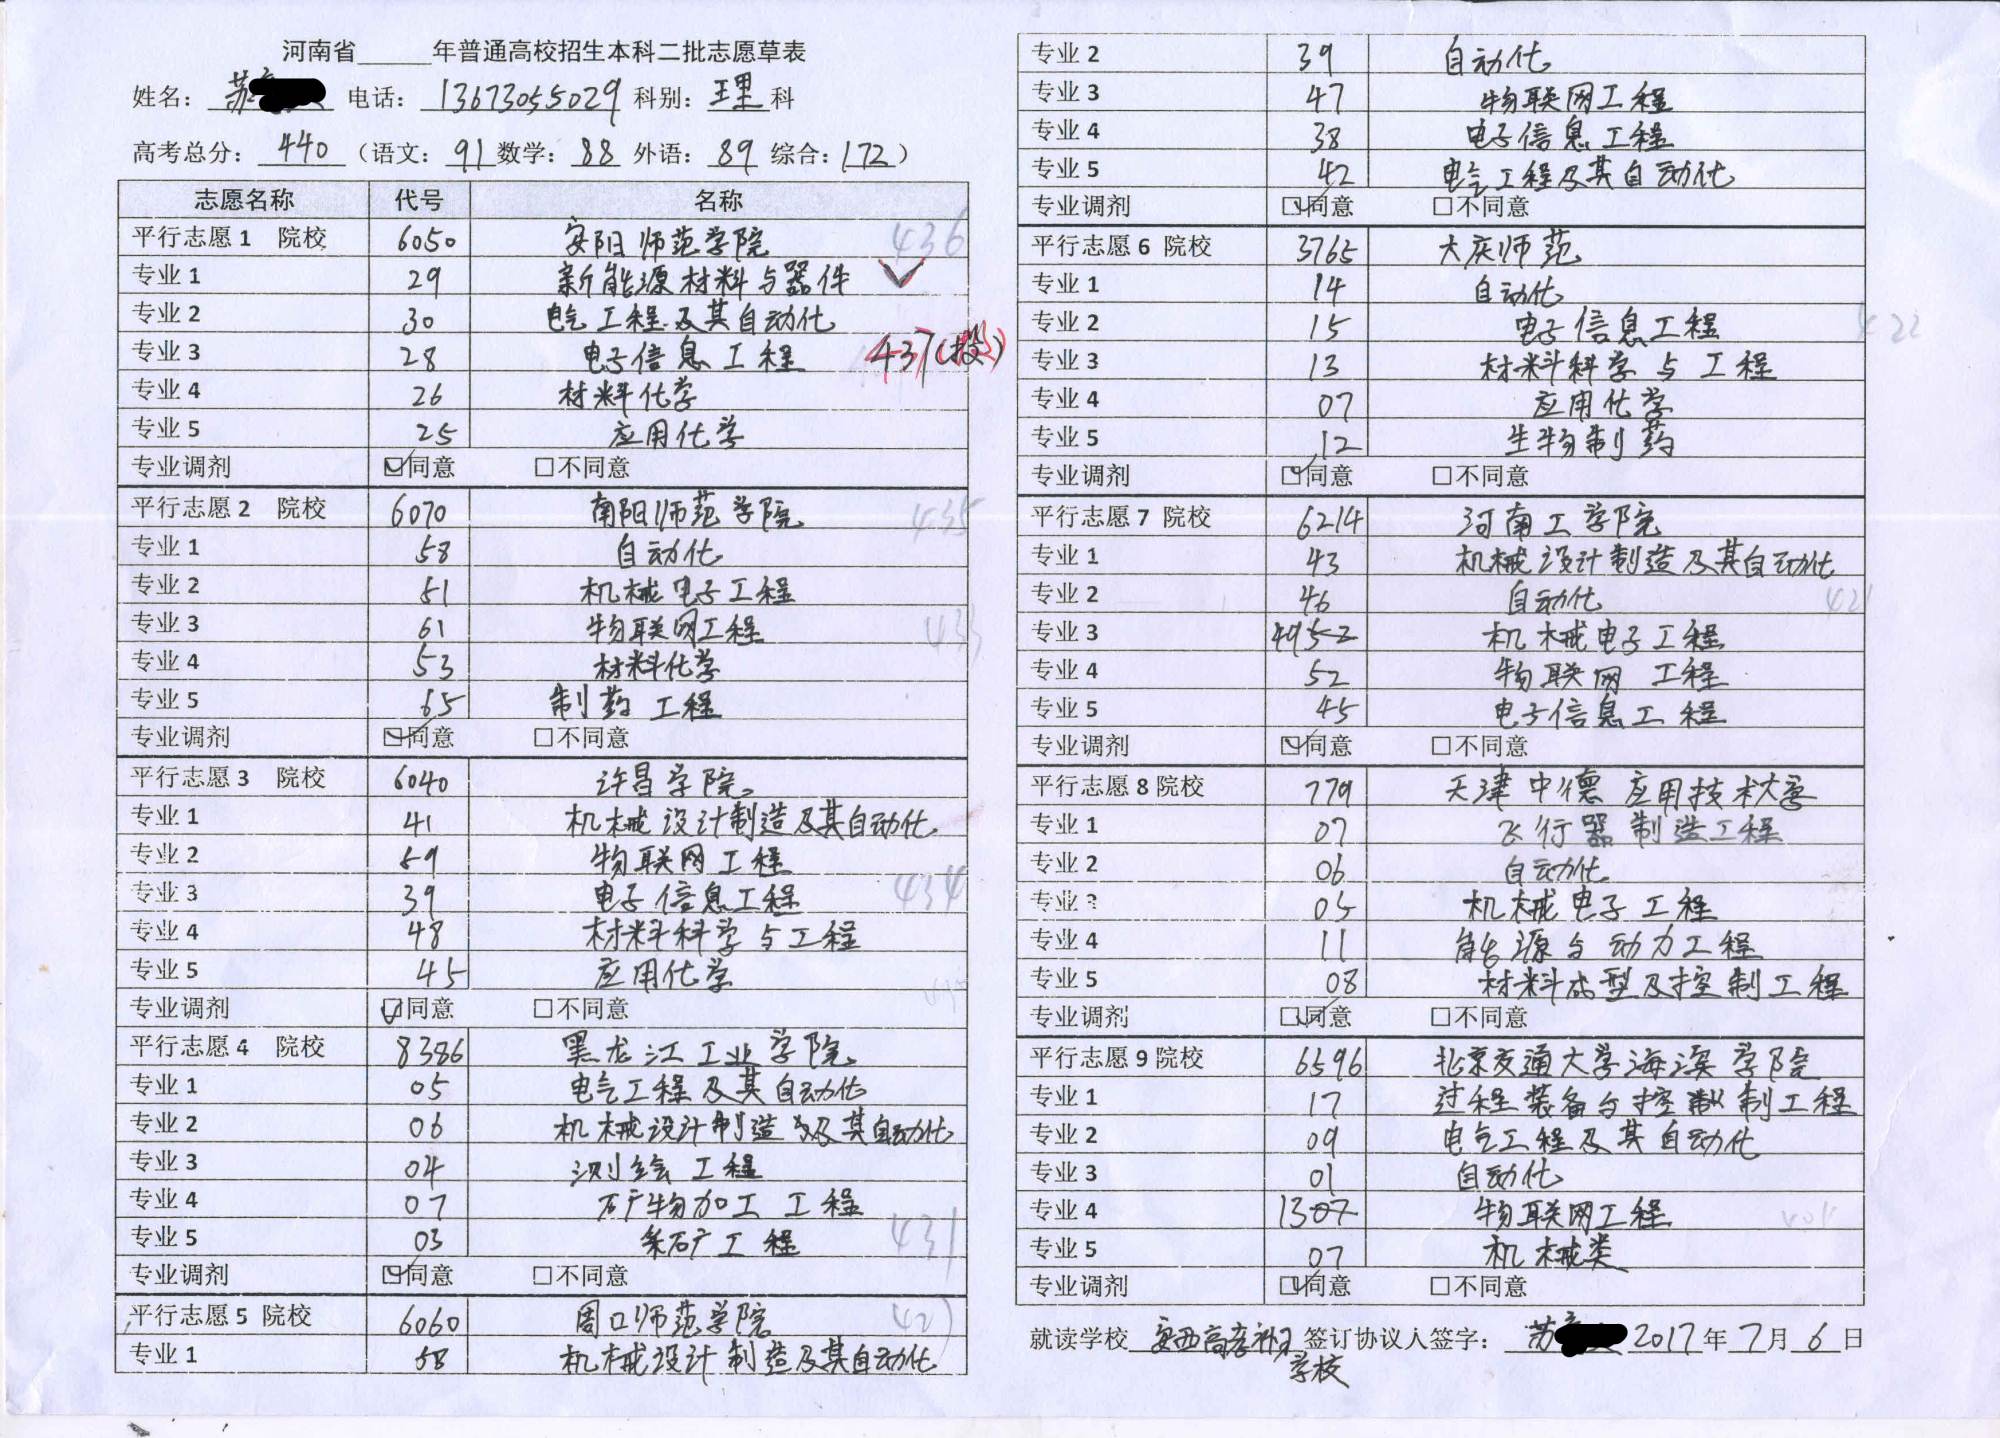 河南省______年普通高校招生本科二批志愿草表
姓名: 苏 电话: 13673055029 科别: 理科
高考总分: 440 (语文: 91 数学: 88 外语: 89 综合: 172)
志愿名称 代号 名称
平行志愿1 院校 6050 安阳师范学院 436
专业1 29 新能源材料与器件 ✓
专业2 30 电气工程及其自动化
专业3 28 电子信息工程 437(投)
专业4 26 材料化学
专业5 25 应用化学
专业调剂 ☑同意 □不同意
平行志愿2 院校 6070 南阳师范学院 435
专业1 58 自动化
专业2 51 机械电子工程
专业3 61 物联网工程 433
专业4 53 材料化学
专业5 65 制药工程
专业调剂 ☑同意 □不同意
平行志愿3 院校 6040 许昌学院
专业1 41 机械设计制造及其自动化
专业2 59 物联网工程
专业3 39 电子信息工程 434
专业4 48 材料科学与工程
专业5 45 应用化学
专业调剂 ☑同意 □不同意
平行志愿4 院校 8386 黑龙江工业学院
专业1 05 电气工程及其自动化
专业2 06 机械设计制造及其自动化
专业3 04 测绘工程
专业4 07 矿物加工工程
专业5 03 采矿工程 431
专业调剂 ☑同意 □不同意
平行志愿5 院校 6060 周口师范学院 427
专业1 58 机械设计制造及其自动化
专业2 39 自动化
专业3 47 物联网工程
专业4 38 电子信息工程
专业5 42 电气工程及其自动化
专业调剂 ☑同意 □不同意
平行志愿6 院校 3765 大庆师范
专业1 14 自动化
专业2 15 电子信息工程 422
专业3 13 材料科学与工程
专业4 07 应用化学
专业5 12 生物制药
专业调剂 ☑同意 □不同意
平行志愿7 院校 6214 河南工学院
专业1 43 机械设计制造及其自动化
专业2 46 自动化 421
专业3 4952 机械电子工程
专业4 52 物联网工程
专业5 45 电子信息工程
专业调剂 ☑同意 □不同意
平行志愿8 院校 779 天津中德应用技术大学
专业1 07 飞行器制造工程
专业2 06 自动化
专业3 05 机械电子工程
专业4 11 能源与动力工程
专业5 08 材料成型及控制工程
专业调剂 ☑同意 □不同意
平行志愿9 院校 6596 北京交通大学海滨学院
专业1 17 过程装备与控制工程
专业2 09 电气工程及其自动化
专业3 01 自动化
专业4 1307 物联网工程
专业5 07 机械类
专业调剂 ☑同意 □不同意
就读学校 安西高考补习学校 签订协议人签字: 苏 2017年7月6日